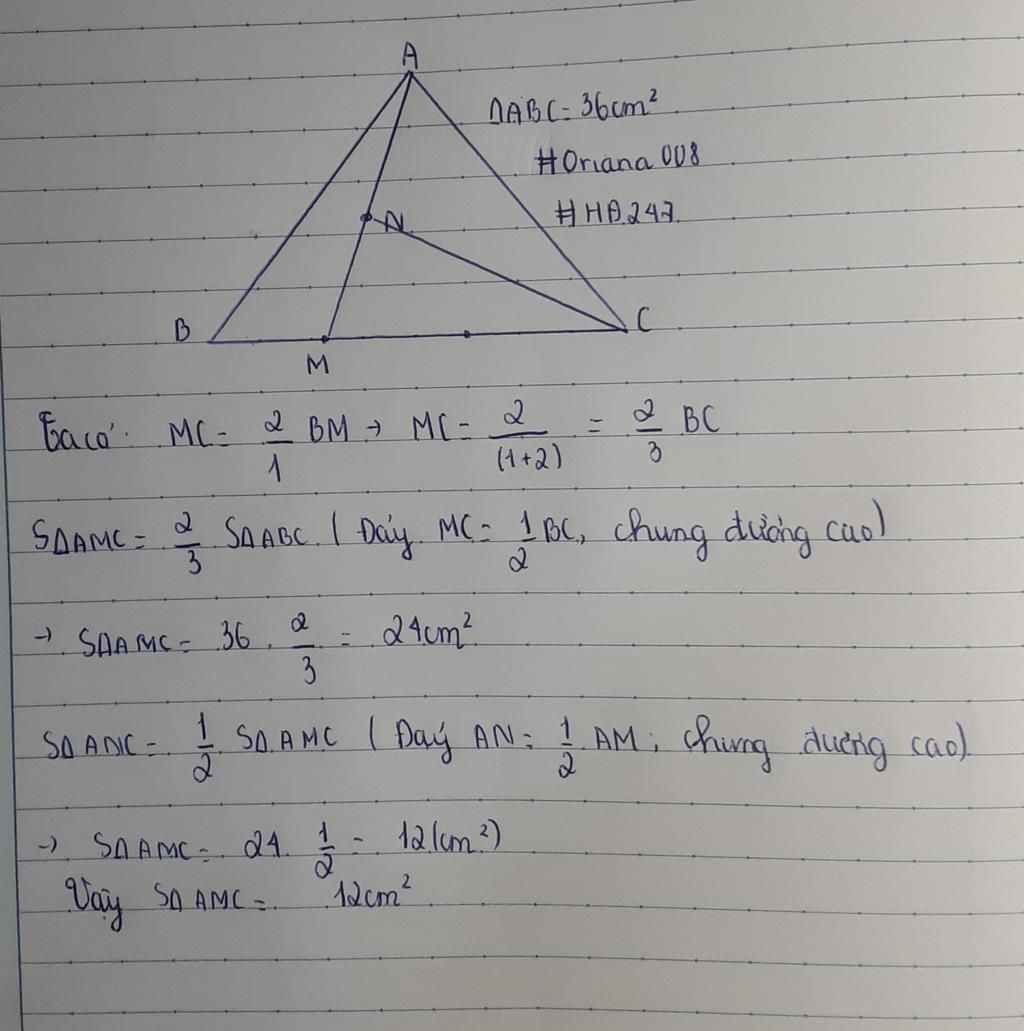 A
ΔABC = 36cm²
#Oriana 008
#HA.247.
N
B
C
M
Ta có: MC = 2/1 BM → MC = 2/(1+2) = 2/3 BC
SΔAMC = 2/3 SΔABC. (Đáy MC = 1/2 BC, chung đường cao)
→ SΔAMC = 36 . 2/3 = 24cm²
SΔANC = 1/2 SΔ.AMC (Đáy AN = 1/2 AM; chung đường cao).
→ SΔAMC = 24. 1/2 = 12(cm²)
Vậy SΔAMC = 12cm²